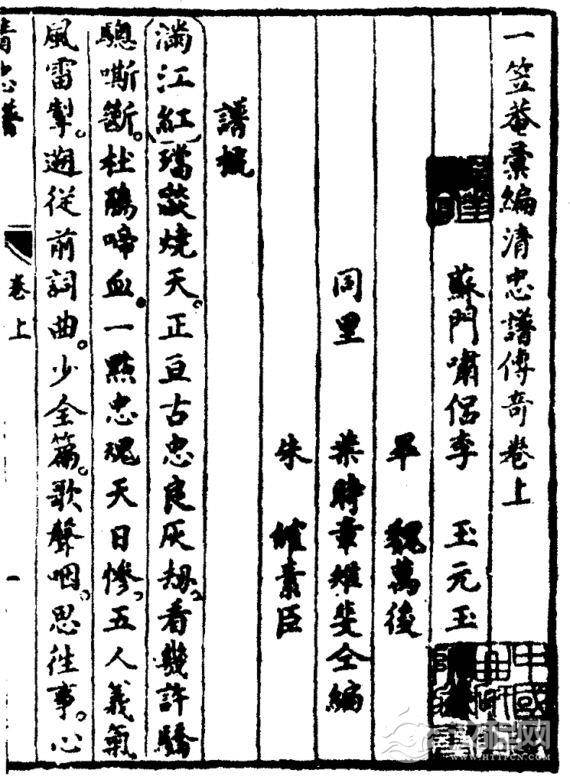 一笠菴彙編清忠譜傳奇卷上
蘇門嘯侶李 玉元玉
畢 魏萬後
同里 葉時章雉斐仝編
朱 素臣
譜概
滿江紅 璫燄燒天。正亘古忠良灰劫。看幾許驕
驄嘶斷。杜鵑啼血。一點忠魂天日慘。五人義氣
風雷掣。遡從前詞曲。少全篇。歌聲咽。思往事。心
清忠譜 卷上 一
中國
WWW.HTTPCN.COM